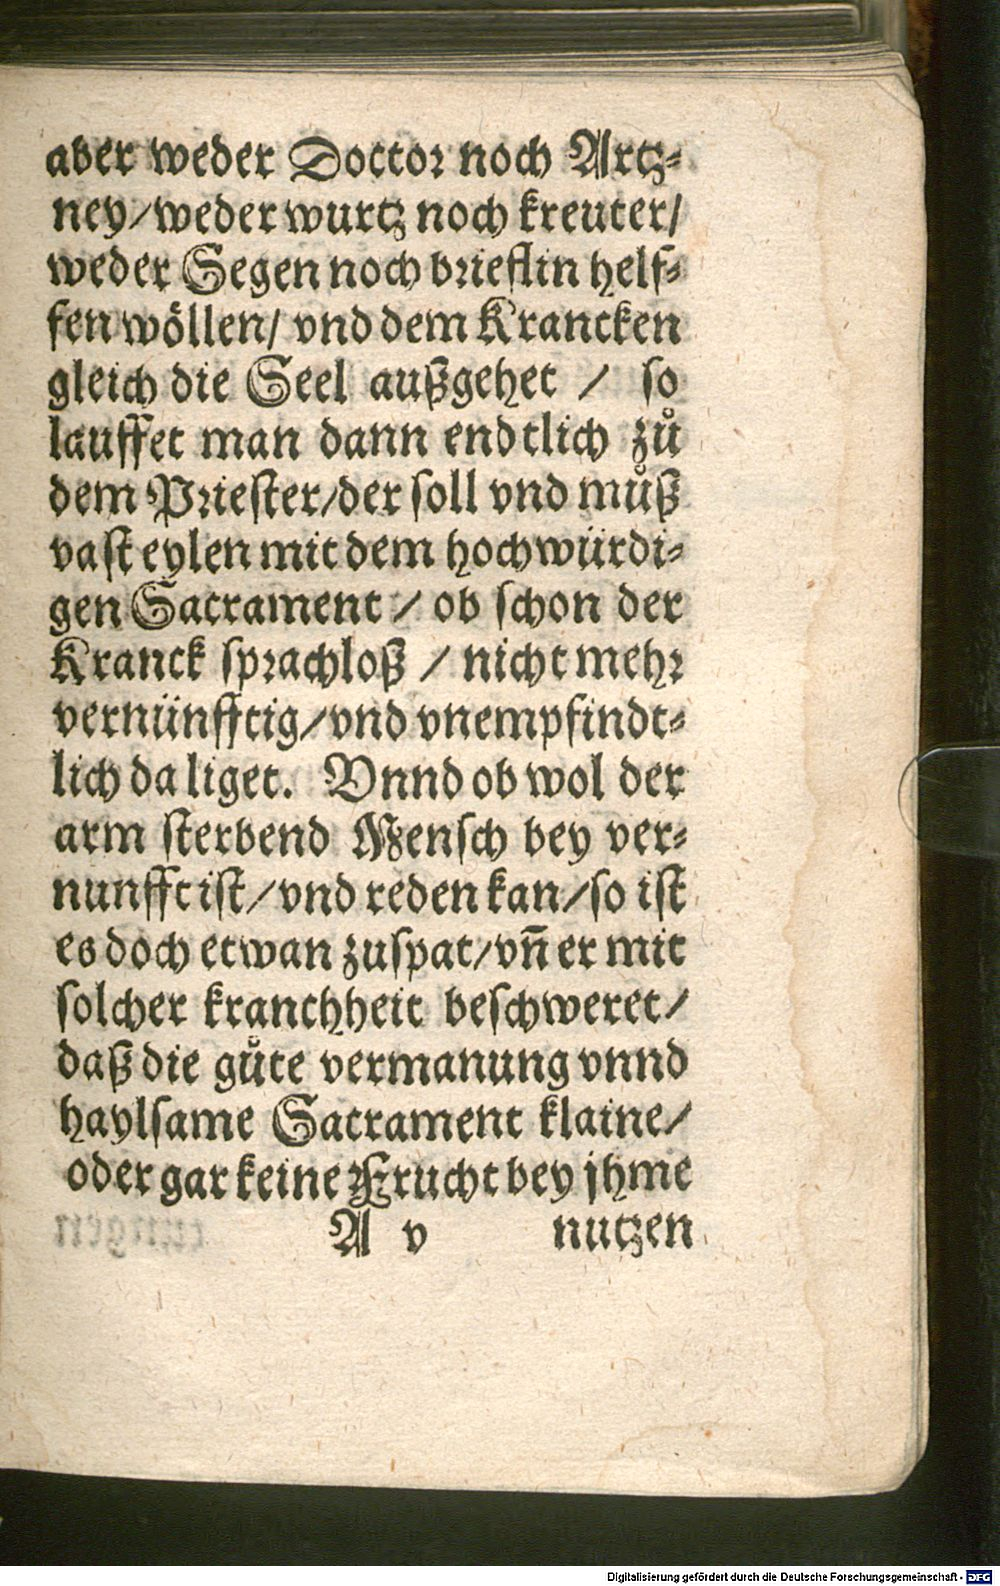 aber weder Doctor noch Artz⸗
ney/weder wurtz noch kreuter/
weder Segen noch brieflin helf⸗
fen wöllen/ vnd dem Krancken
gleich die Seel außgehet / so
lauffet man dann endtlich zů
dem Priester/der soll vnd můß
vast eylen mit dem hochwürdi⸗
gen Sacrament / ob schon der
Kranck sprachloß / nicht mehr
vernünfftig/vnd vnempfindt⸗
lich da liget. Vnnd ob wol der
arm sterbend Mensch bey ver⸗
nunfft ist/vnd reden kan/so ist
es doch etwan zuspat/vn̄ er mit
solcher kranchheit beschweret/
daß die gůte vermanung vnnd
haylsame Sacrament klaine/
oder gar keine Frucht bey jhme
A v nutzen
Digitalisierung gefördert durch die Deutsche Forschungsgemeinschaft - DFG